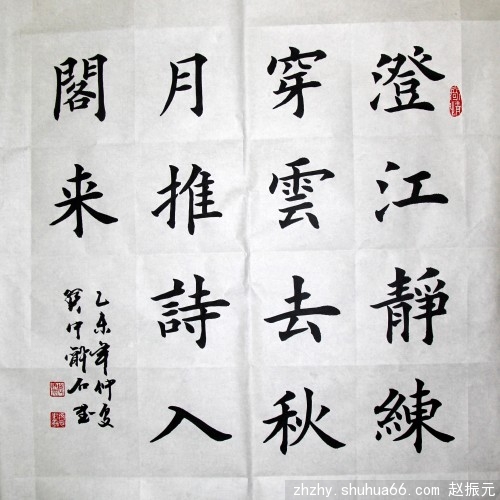 澄江靜練
穿雲去秋
月推詩入
閣来
乙未年仲夏
zhzhy.shuhua66.com 赵振元